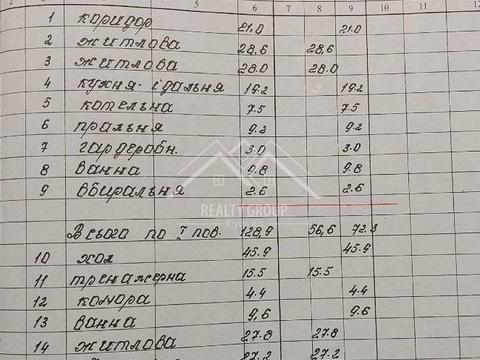 3 5 6 7 8 9 10 11
1 коридор 21.0 21.0
2 житлова 28,6 28,6
3 житлова 28.0 28.0
4 кухня-їдальня 19.2 19.2
5 котельна 7.5 7.5
6 пральня 9.2 9.2
7 гардеробн. 3.0 3.0
8 ванна 9.8 9.8
9 вбиральня 2.6 2.6
REALTY GROUP
Всього по I пов. 128,9 56,6 72.3
10 хол 45.9 45.9
11 тренажерна 15.5 15.5
12 комора 4.4 4.4
13 ванна 9,6 9.6
14 житлова 27.8 27.8
27.2 27.2